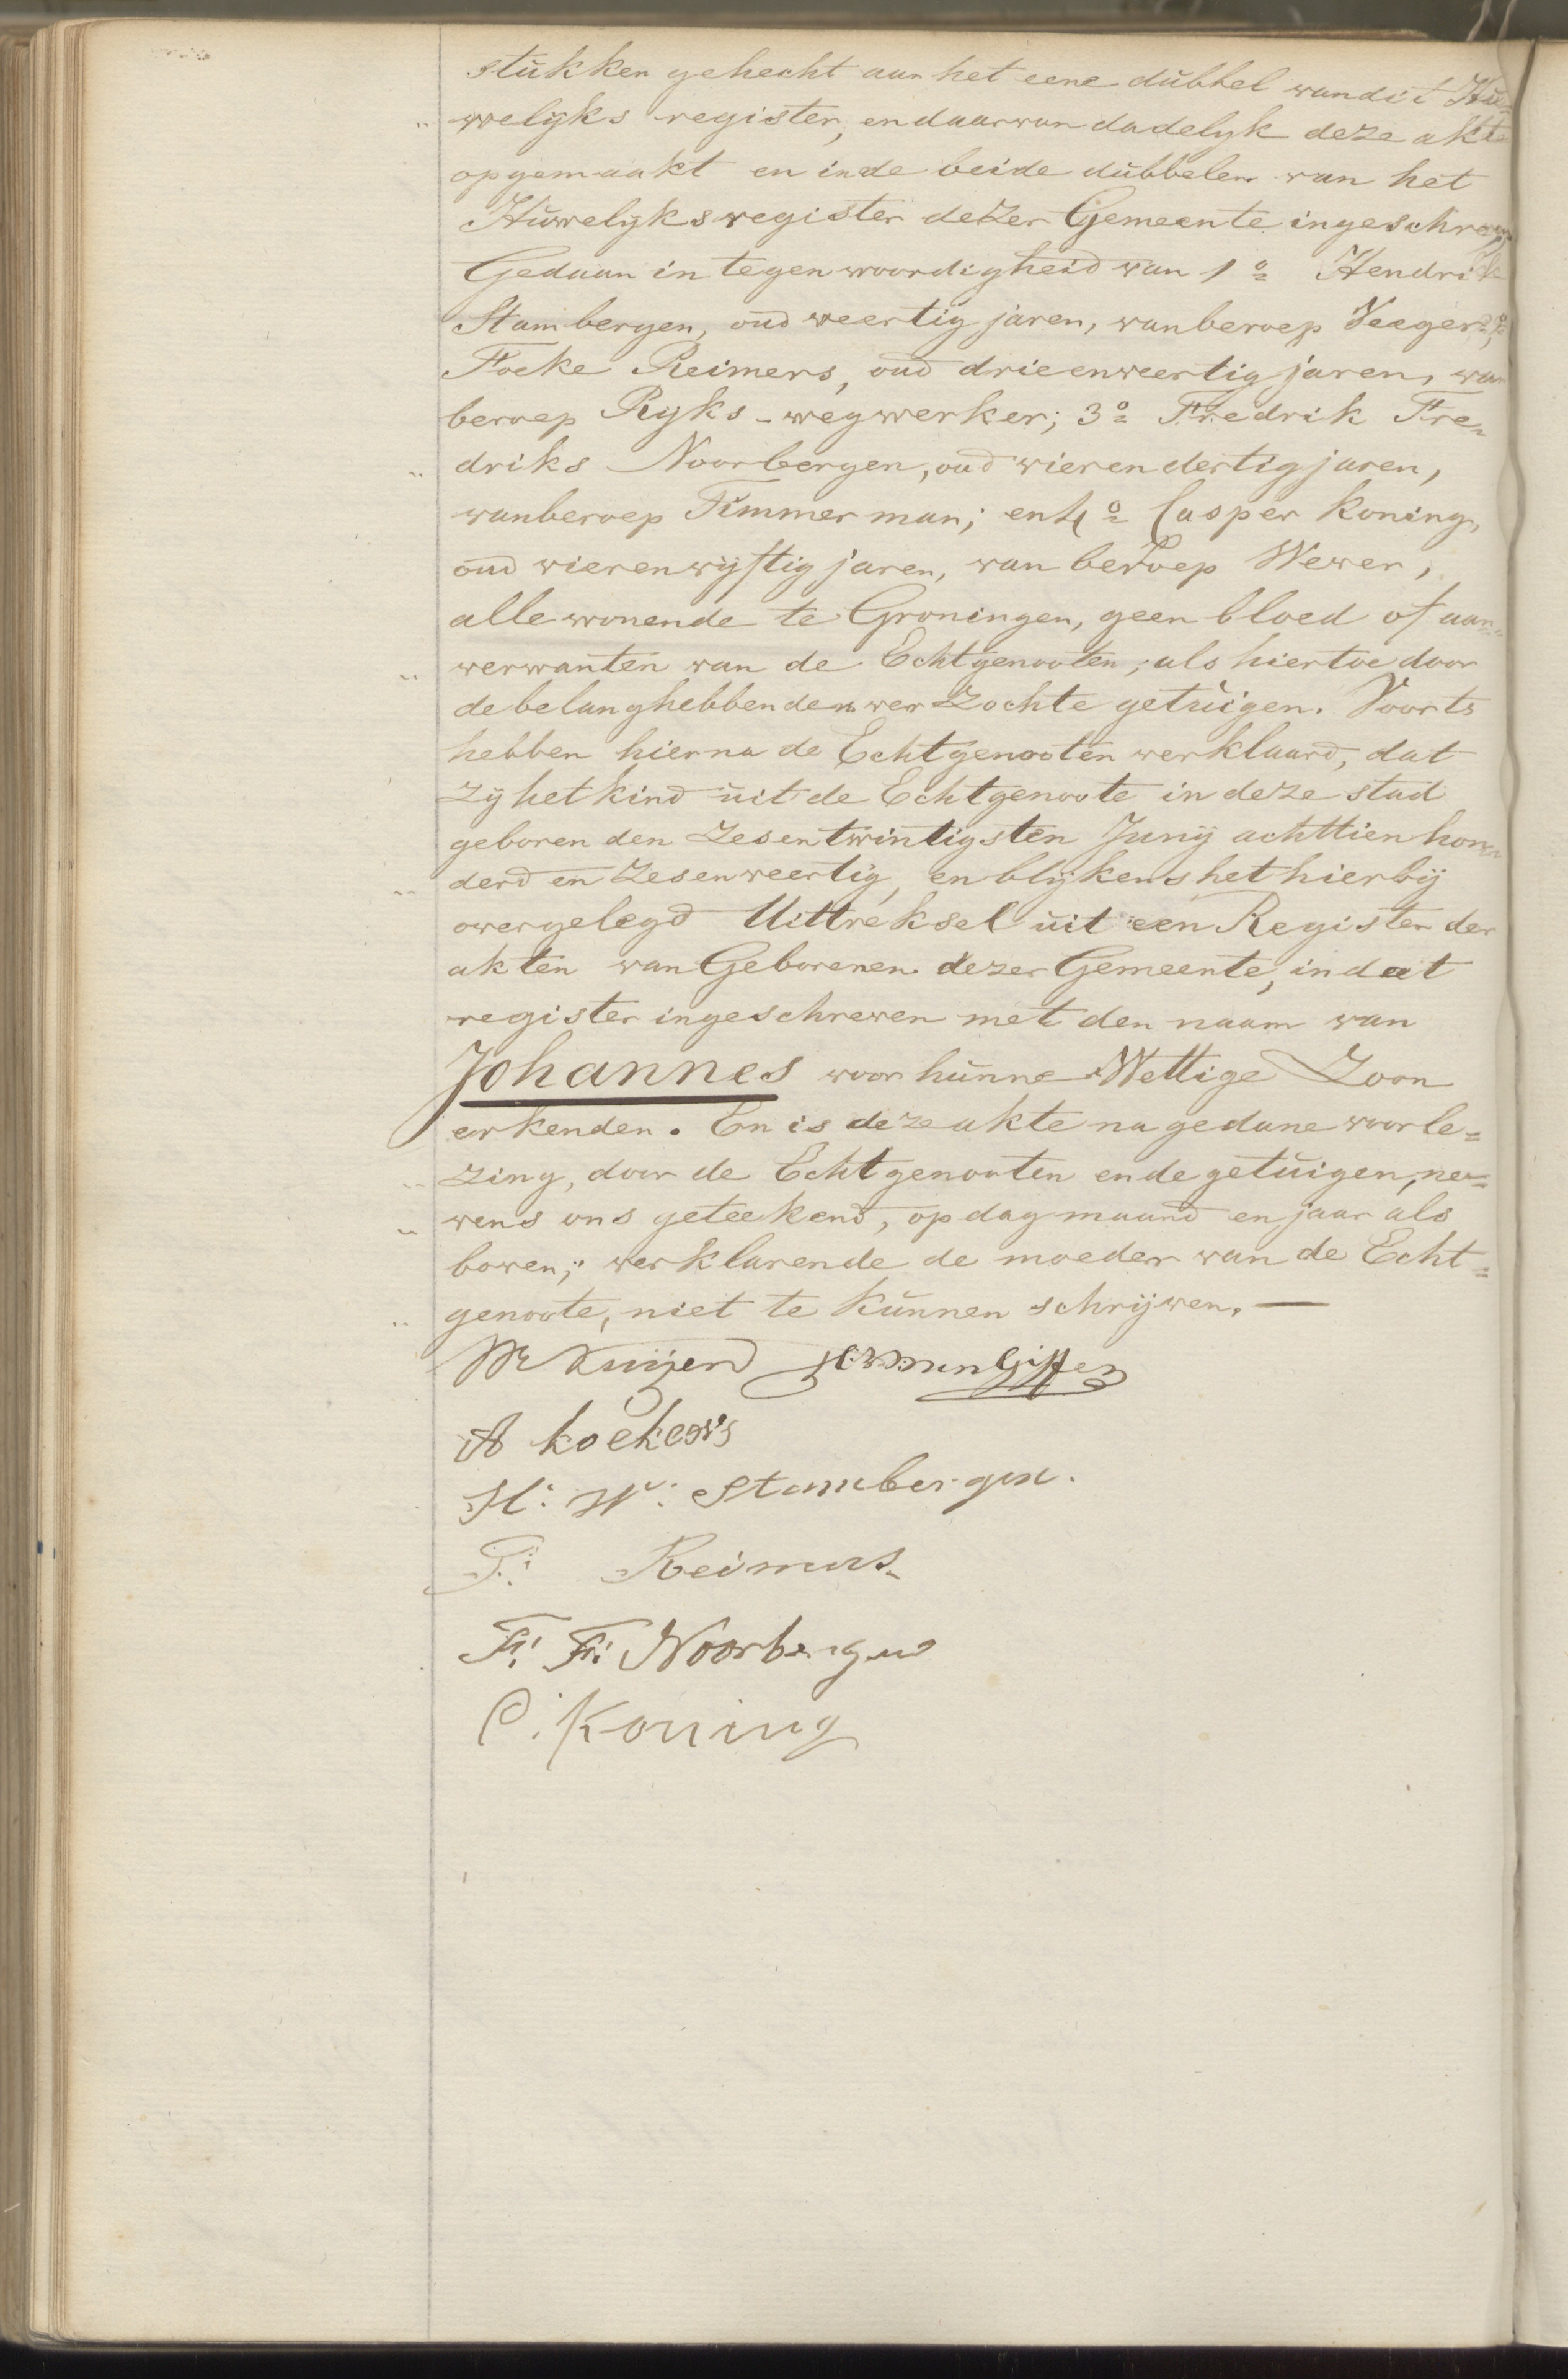 stukken gehecht aan het eene dubbel van dit Hu=
„ welijks register, en daarvan dadelyk deze akte
opgemaakt en in de beide dubbelen van het
Huwelyks register dezer Gemeente ingeschreven
Gedaan in tegenwoordigheid van 1º Hendrik
Stambergen, oud veertig jaren, van beroep Veeger; 2º
Focke Reimers, oud drieenveertig jaren, van
beroep Ryks-wegwerker; 3º Fredrik Fre=
„ driks Noorbergen, oud vierendertig jaren,
van beroep Timmerman; en 4º Casper Koning,
oud vierenvijftig jaren, van beroep Wever,
alle wonende te Groningen, geen bloed of aan=
„ verwanten van de Echtgenooten; als hiertoe door
de belanghebbenden verzochte getuigen. Voorts
hebben hierna de Echtgenooten verklaard, dat
zij het kind uit de Echtgenoote in deze stad
geboren den Zesentwintigsten Junij achttien hon=
„ derd en Zesenveertig, en blijkens het hierbij
overgelegd Uittreksel uit een Register der
akten van Geborenen dezer Gemeente, in dat
register ingeschreven met den naam van
Johannes voor hunne Wettige Zoon
erkenden. En is deze akte na gedane voorle=
„ zing, door de Echtgenooten en de getuigen, ne=
„ vens ons geteekend, op dag maand en jaar als
boven; verklarende de moeder van de Echt=
„ genoote, niet te kunnen schrijven. —
van Giffen
A koekers
H: W: Stambergen.
F: Reimers.
F: F: Noorbergen
C: Koning